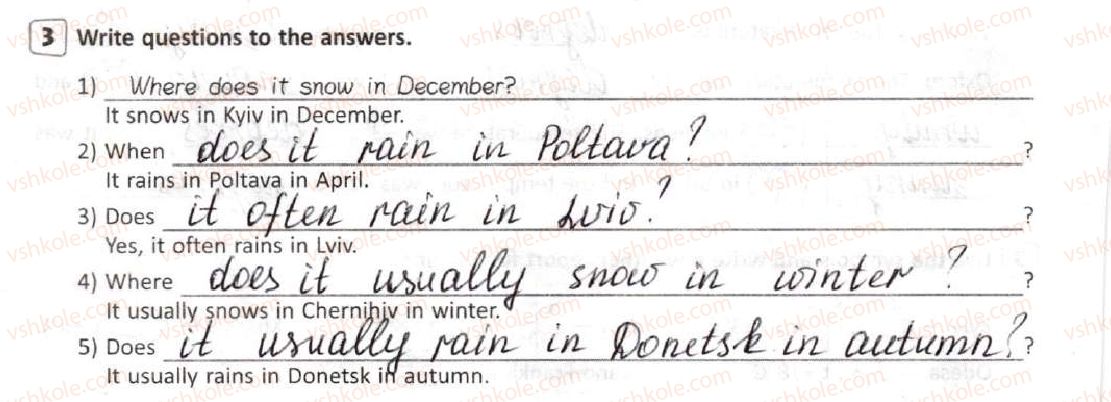 3 Write questions to the answers.
1) Where does it snow in December?
It snows in Kyiv in December.
2) When does it rain in Poltava? ?
It rains in Poltava in April.
3) Does it often rain in Lviv? ?
Yes, it often rains in Lviv.
4) Where does it usually snow in winter? ?
It usually snows in Chernihiv in winter.
5) Does it usually rain in Donetsk in autumn? ?
It usually rains in Donetsk in autumn.